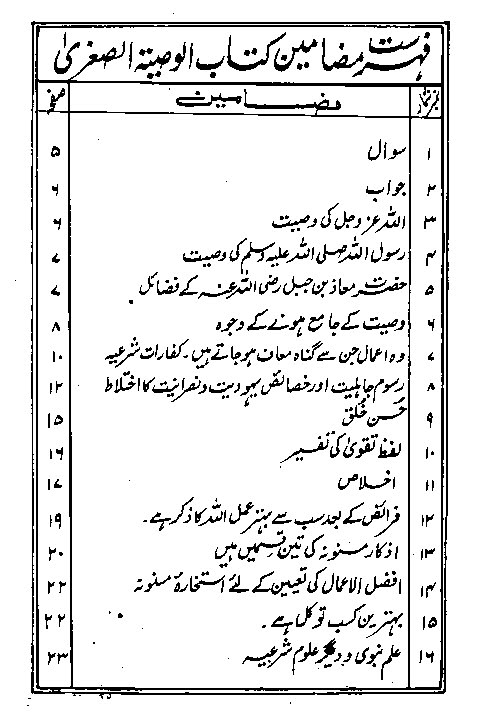 فہرست مضامین کتاب الوصیۃ الصغریٰ
نمبر شمار مضامین صفحہ
۱ سوال ۵
۲ جواب ۶
۳ اللہ عز و جل کی وصیت ۶
۴ رسول اللہ صلی اللہ علیہ وسلم کی وصیت ۷
۵ حضرت معاذ بن جبل رضی اللہ عنہ کے فضائل ۷
۶ وصیت کے جامع ہونے کے وجوہ ۸
۷ وہ اعمال جن سے گناہ معاف ہو جاتے ہیں۔ کفارات شرعیہ ۱۰
۸ رسوم جاہلیت اور خصائص یہودیت و نصرانیت کا اختلاط ۱۲
۹ حُسنِ خُلق ۱۵
۱۰ لفظ تقویٰ کی تفسیر ۱۶
۱۱ اخلاص ۱۷
۱۲ فرائض کے بعد سب سے بہتر عمل اللہ کا ذکر ہے۔ ۱۹
۱۳ اذکار مسنونہ کی تین قسمیں ہیں ۲۰
۱۴ افضل الاعمال کی تعیین کے لئے استخارۂ مسنونہ ۲۲
۱۵ بہترین کسب توکل ہے۔ ۲۲
۱۶ علم نبوی و دیگر علوم شرعیہ ۲۳